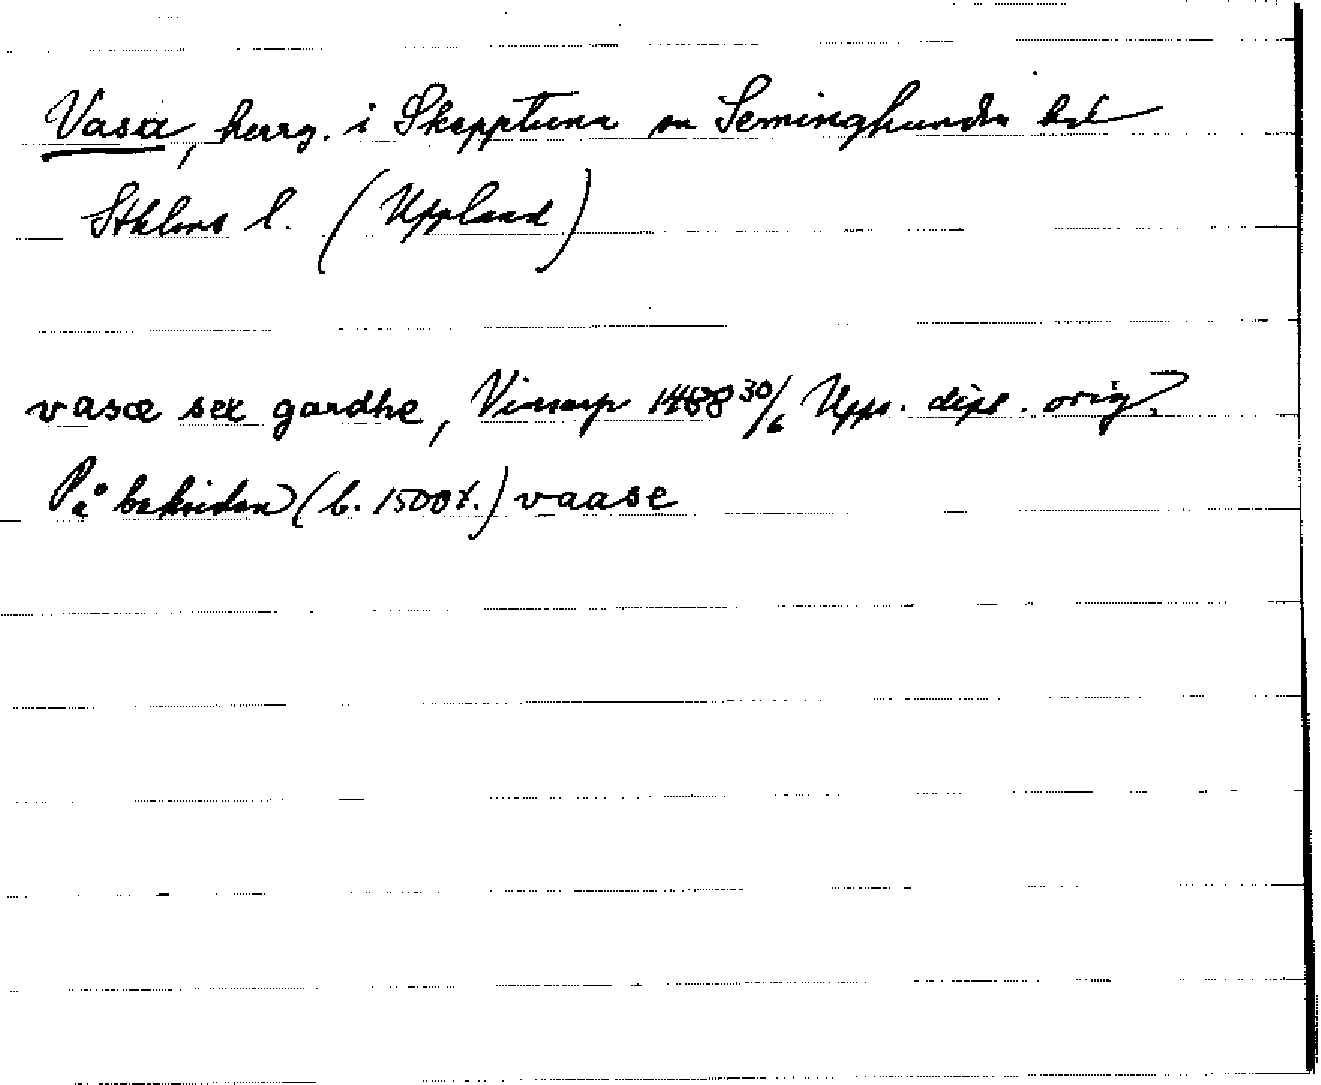 Vasa, herrg. i Skepptuna sn Seminghundra hd
Sthlms l. (Uppland)
vasæ sex gardhe, Vinsarp 1488 30/6 Upps. dipl. orig.
På baksidan (b. 1500 t.) vaase